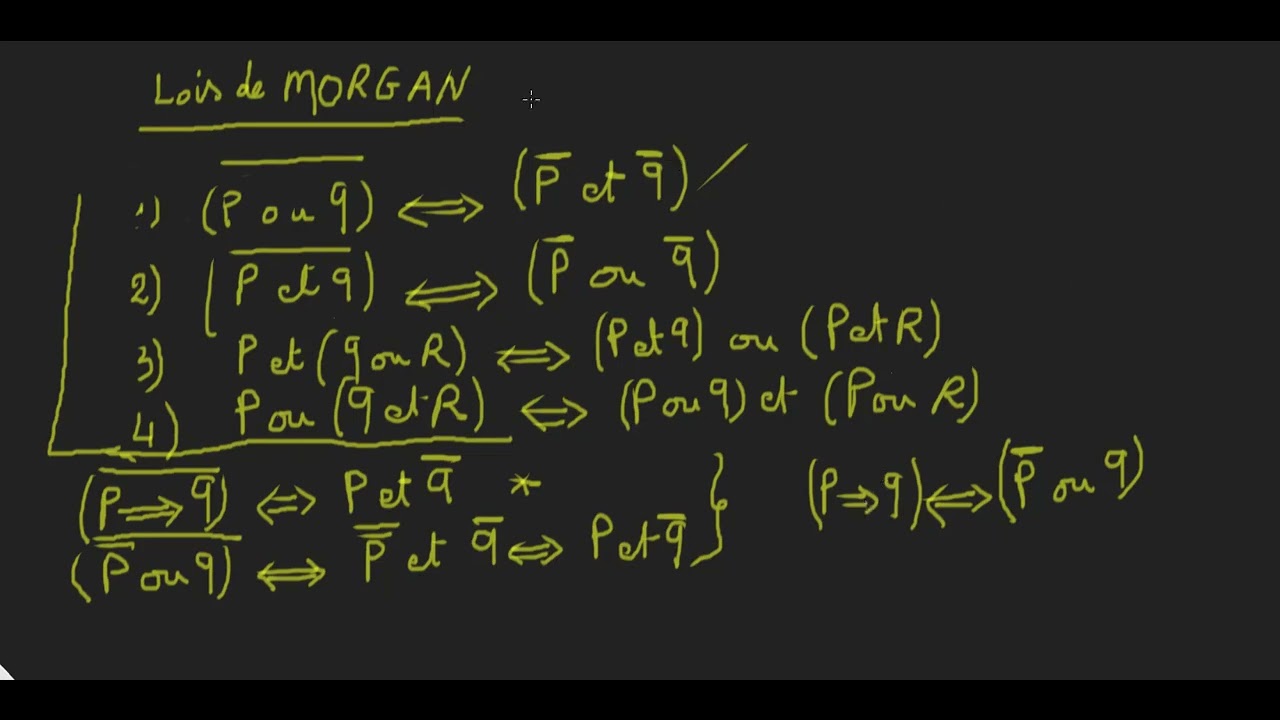 Lois de MORGAN
1) $\overline{(P \text{ ou } q)}$ ⟺ ($\overline{P}$ et $\overline{q}$)
2) ($\overline{P \text{ et } q}$) ⟺ ($\overline{P}$ ou $\overline{q}$)
3) P et (q ou R) ⟺ (P et q) ou (P et R)
4) P ou (q et R) ⟺ (P ou q) et (P ou R)
($\overline{P \Rightarrow q}$) ⟺ P et $\overline{q}$ * (P ⇒ q) ⟺ ($\overline{P}$ ou q)
($\overline{\overline{P} \text{ ou } q}$) ⟺ $\overline{\overline{P}}$ et $\overline{q}$ ⟺ P et $\overline{q}$ }